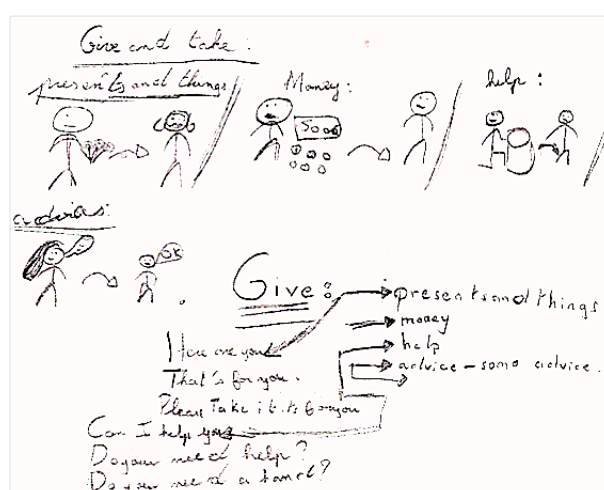 Give and take:
presents and things
Money:
help:
5000
advices:
OK
Give:
presents and things
money
help
advice - some advice.
Here are you
That's for you.
Please Take it it's for you
Can I help you
Do your need help?
Do you need a